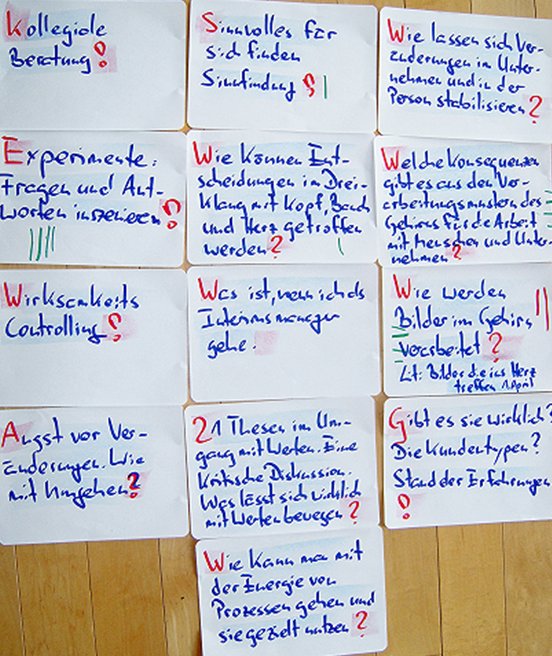 Kollegiale
Beratung?
Sinnvolles für
sich finden
Sinnfindung?
Wie lassen sich Ver-
änderungen im Unter-
nehmen und in der
Person stabilisieren?
Experimente:
Fragen und Ant-
worten inszenieren?
Wie können Ent-
scheidungen im Drei-
klang mit Kopf, Bauch
und Herz getroffen
werden?
Welche Konsequenzen
gibt es aus den Ver-
arbeitungsmustern des
Gehirns für die Arbeit
mit Menschen und Unter-
nehmen?
Wirksamkeits
Controlling?
Was ist, wenn ich als
Interimsmanager
gehe.
Wie werden
Bilder im Gehirn
verarbeitet?
Lit: Bilder die ins Herz
treffen 1. April
Angst vor Ver-
änderungen. Wie
mit Umgehen?
21 Thesen im Um-
gang mit Werten. Eine
kritische Diskussion.
Was lässt sich wirklich
mit Werten bewegen?
Gibt es sie wirklich?
Die Kundentypen?
Stand der Erfahrungen
?
Wie kann man mit
der Energie von
Prozessen gehen und
sie gezielt nutzen?